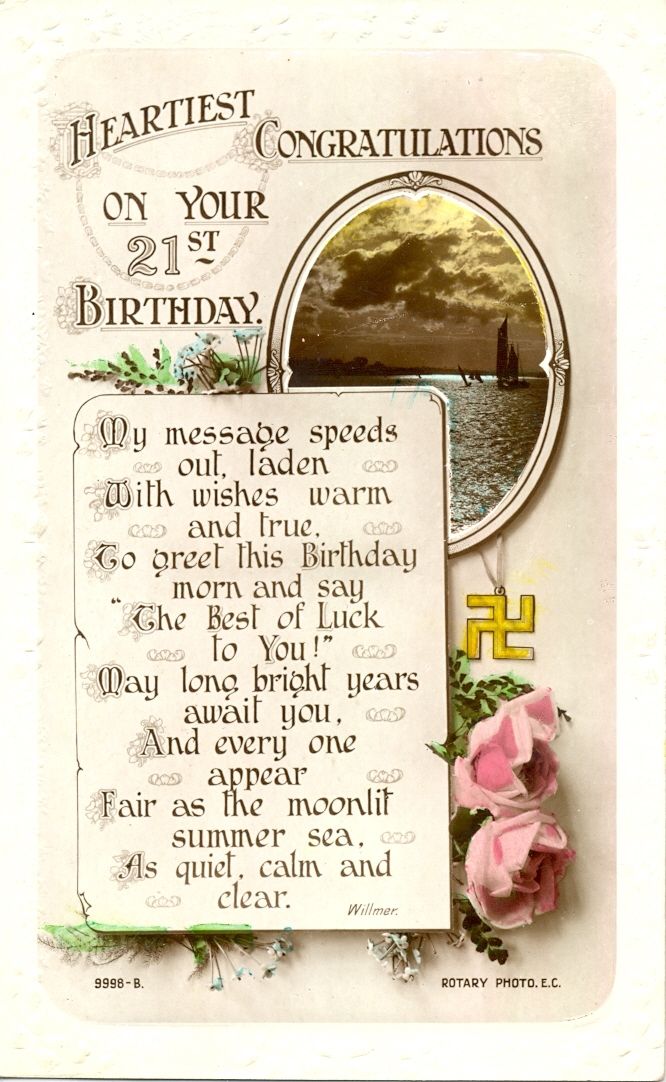 HEARTIEST CONGRATULATIONS
ON YOUR
21ST
BIRTHDAY.
My message speeds
out, laden
With wishes warm
and true,
To greet this Birthday
morn and say
"The Best of Luck
to You!"
May long, bright years
await you,
And every one
appear
Fair as the moonlit
summer sea,
As quiet, calm and
clear.
Willmer.
9998-B.
ROTARY PHOTO. E.C.